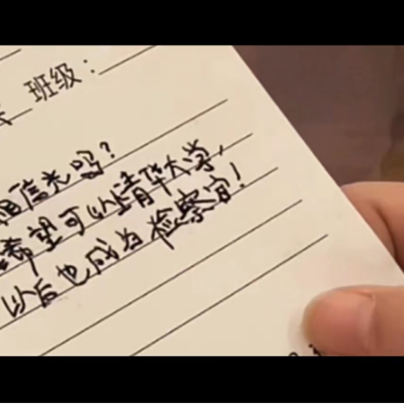 班级：
相信光吗？
希望可以清华大学，
以后也成为检察官！